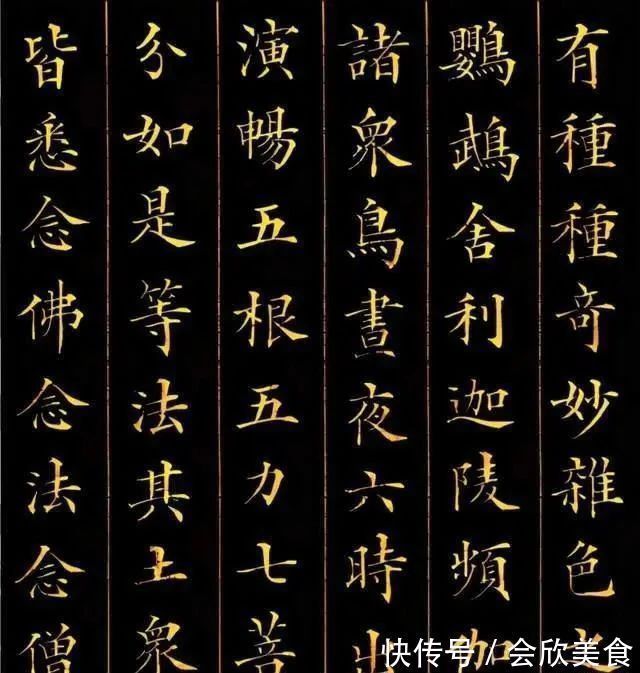 有種種奇妙雜色之
鸚鵡舍利迦陵頻伽
諸眾鳥晝夜六時出
演暢五根五力七菩
分如是等法其土眾
皆悉念佛念法念僧
快传号/会欣美食